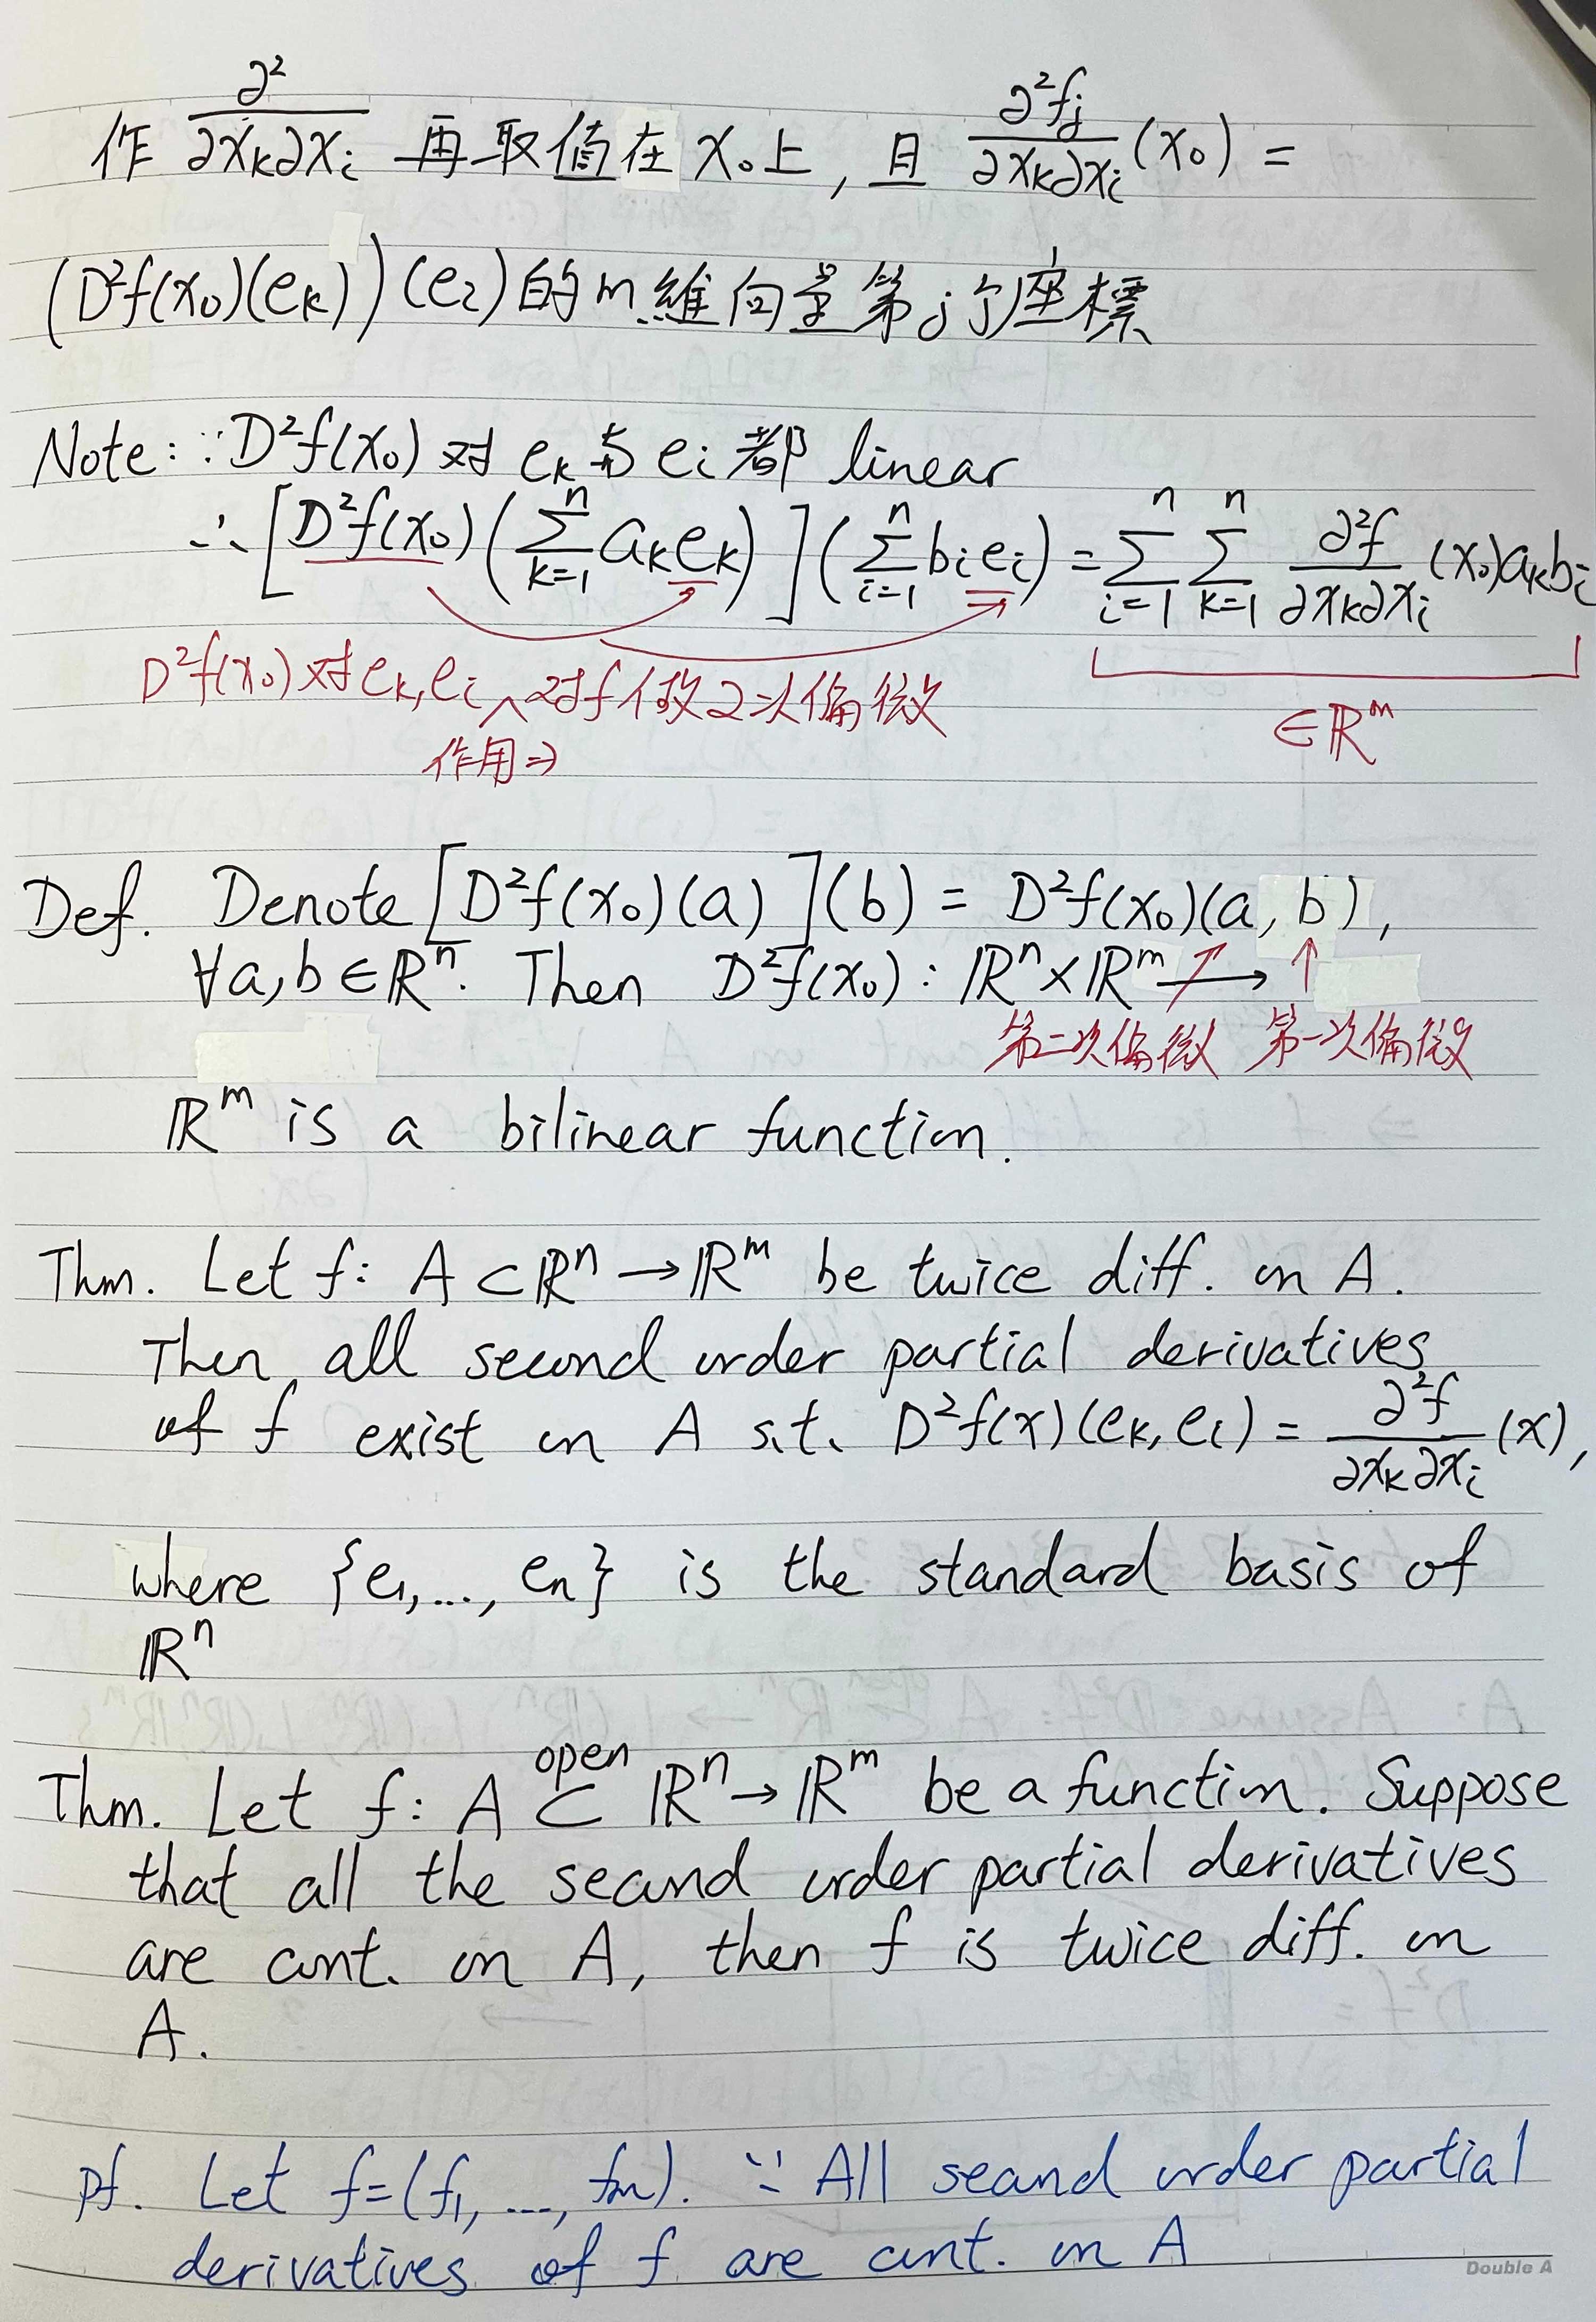 作 ∂²/∂x_k∂x_i 再取值在 x₀上, 且 ∂²f_j/∂x_k∂x_i (x₀) =
(D²f(x₀)(e_k))(e_2)的m維向量第j个座標
Note: ∵D²f(x₀) 对 e_k 与 e_i 都 linear
∴ [D²f(x₀)(∑_{k=1}^{n} a_k e_k)](∑_{i=1}^{n} b_i e_i) = ∑_{i=1}^{n} ∑_{k=1}^{n} ∂²f/∂x_k∂x_i (x₀)a_k b_i
D²f(x₀)对e_k, e_i ^ 对f做2次偏微
∈ℝ^m
作用⇒
Def. Denote [D²f(x₀)(a)](b) = D²f(x₀)(a, b),
∀a, b ∈ ℝ^n. Then D²f(x₀): ℝ^n × ℝ^m ⟶
↗ ↑
第二次偏微 第一次偏微
ℝ^m is a bilinear function.
Thm. Let f: A ⊂ ℝ^n → ℝ^m be twice diff. on A.
Then all second order partial derivatives
of f exist on A s.t. D²f(x)(e_k, e_i) = ∂²f/∂x_k∂x_i (x),
where {e₁, ..., e_n} is the standard basis of
ℝ^n
Thm. Let f: A ⊂^{open} ℝ^n → ℝ^m be a function. Suppose
that all the second order partial derivatives
are cont. on A, then f is twice diff. on
A.
pf. Let f=(f₁, ..., f_m). ∵ All second order partial
derivatives of f are cont. on A
Double A